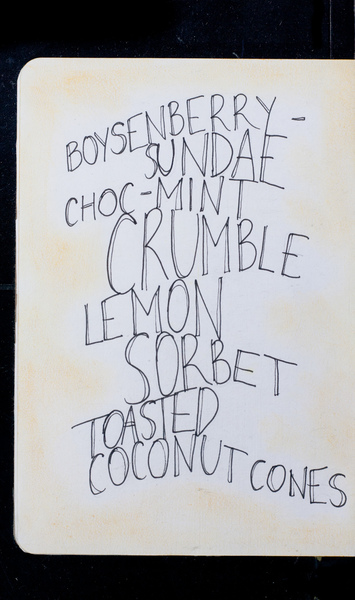 BOYSENBERRY -
SUNDAE
CHOC-MINT
CRUMBLE
LEMON
SORBET
TOASTED
COCONUT CONES